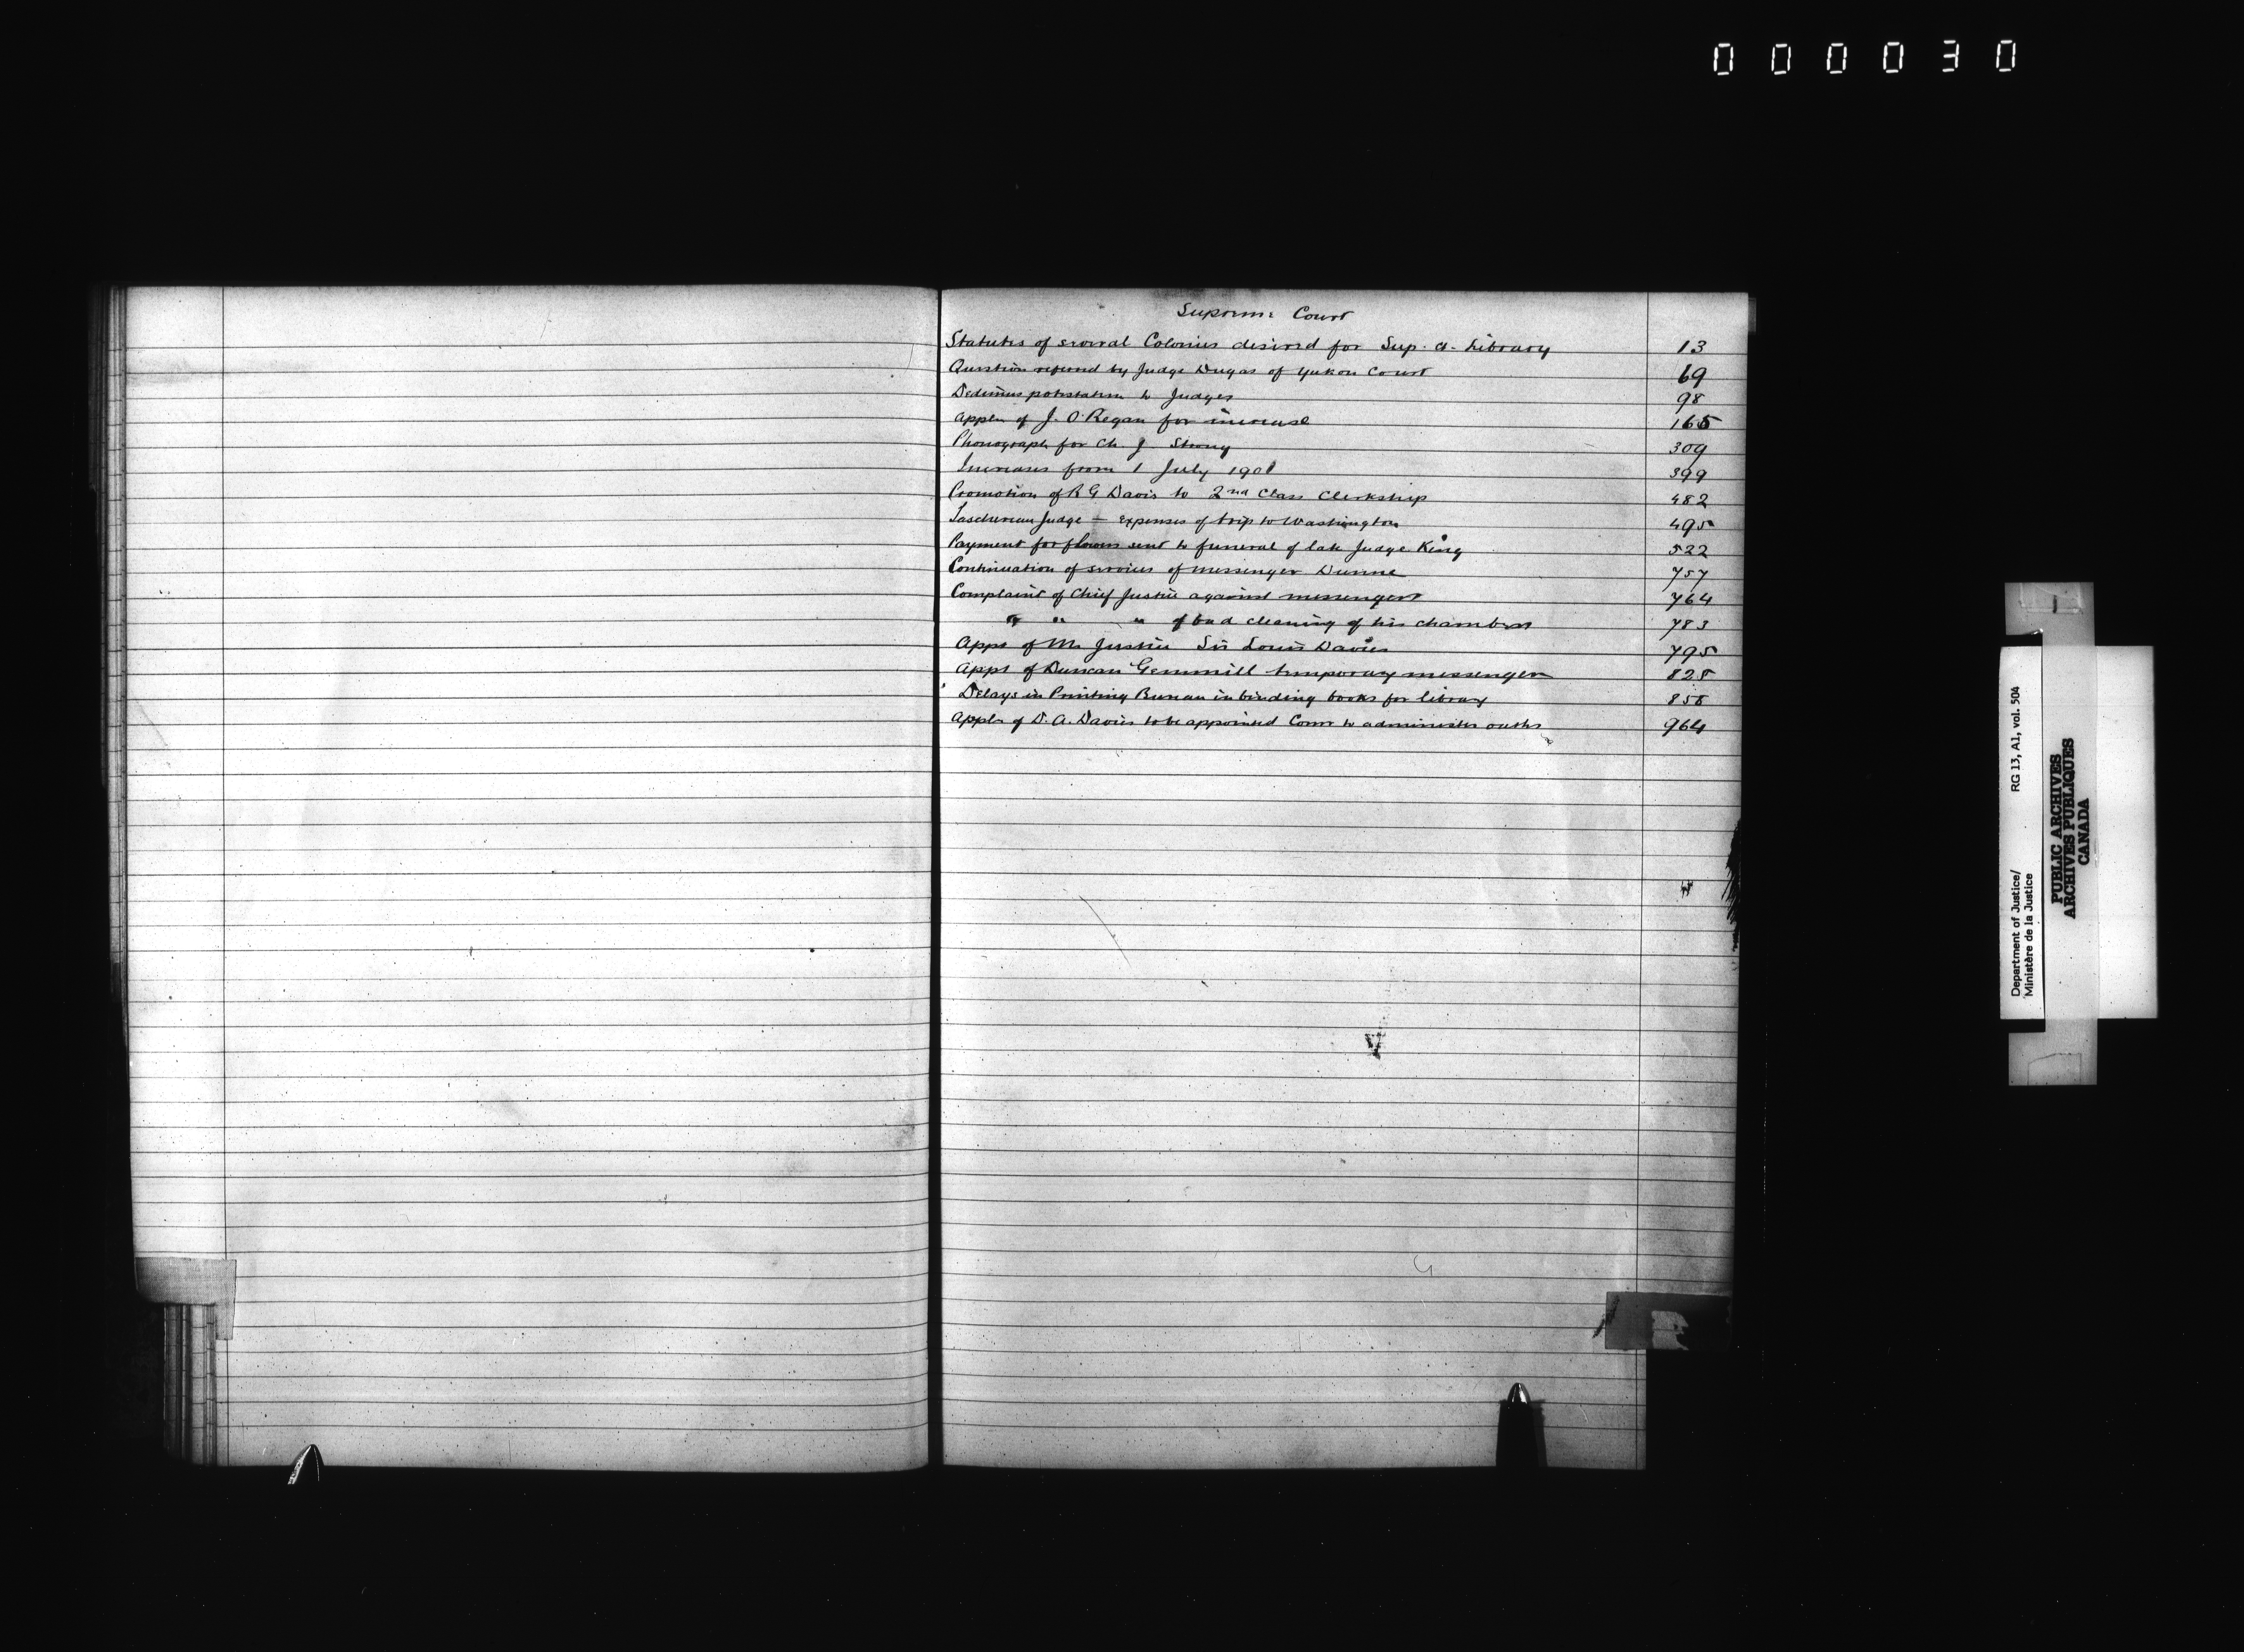 000030
Supreme Court
Statutes of several Colonies desired for Sup. Ct. Library 13
Question referred by Judge Dugas of Yukon Court 69
Dedimus potestatem to Judges 98
Appln of J. O'Regan for increase 165
Phonograph for Ch. J. Strong 309
Increases from 1 July 1901 399
Promotion of R G Davis to 2nd Class Clerkship 482
Taschereau Judge — expenses of trip to Washington 495
Payment for flowers sent to funeral of late Judge King 522
Continuation of services of messenger Dunne 757
Complaint of Chief Justice against messengers 764
" " " of bad cleaning of his chambers 783
Appt of Mr Justice Sir Louis Davies 795
Appt of Duncan Gemmill temporary messenger 828
Delays in Printing Bureau in binding books for library 858
Appln of D. A. Davies to be appointed Comr to administer oaths 964
Department of Justice/ RG 13, A1, vol. 504
Ministère de la Justice
PUBLIC ARCHIVES
ARCHIVES PUBLIQUES
CANADA